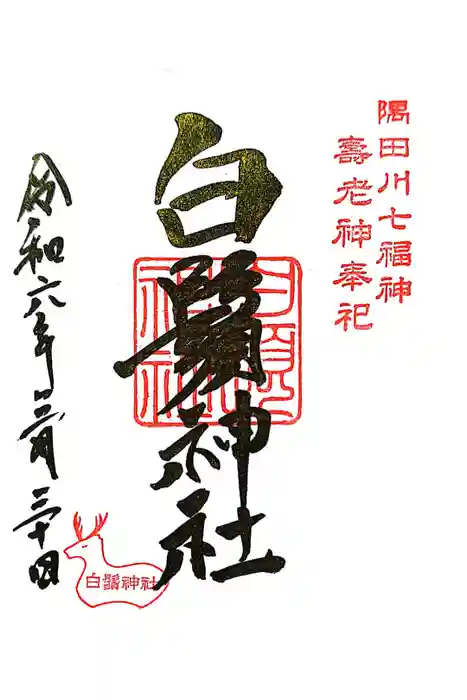 隅田川七福神
壽老神奉祀
白鬚神社
白鬚神社
令和六年三月三十日
白鬚神社